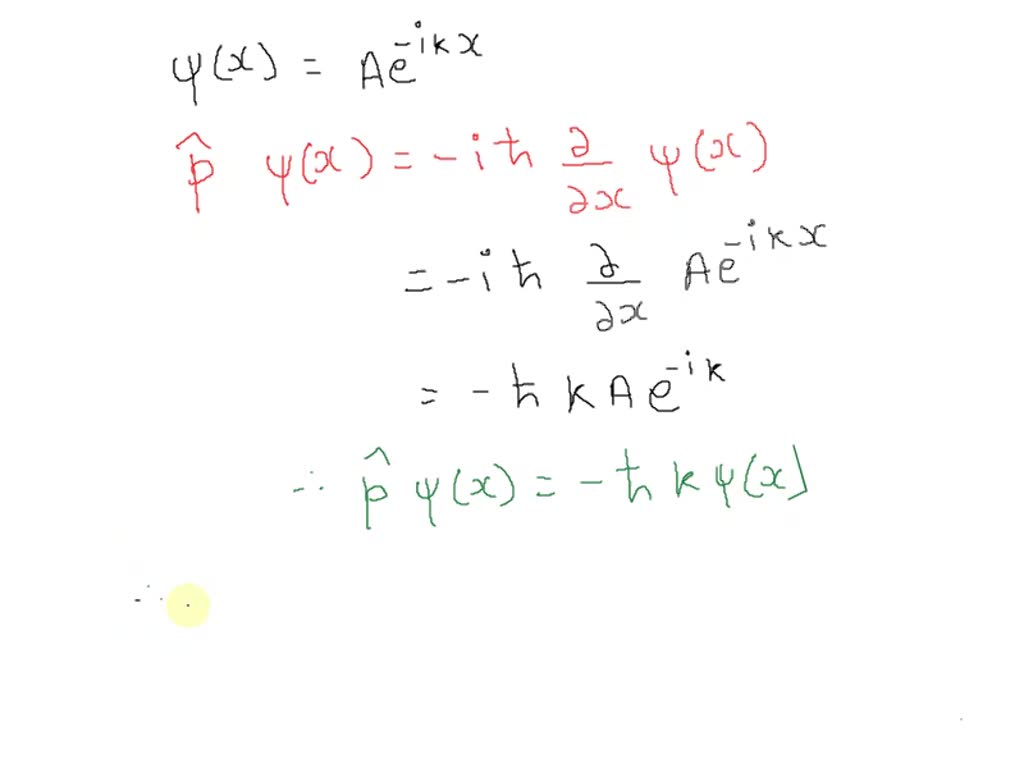 ψ(x) = Ae^{-ikx}
p̂ ψ(x) = -iħ ∂/∂x ψ(x)
= -iħ ∂/∂x Ae^{-ikx}
= -ħkAe^{-ik}
∴ p̂ψ(x) = -ħkψ(x)
∴